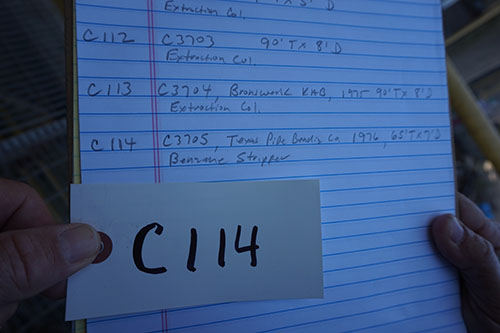 Extraction Col.
C112 C3703 90' TX 8' D
Extraction Col.
C113 C3704, Bronswerk K.A.B, 1975 90' TX 8' D
Extraction Col.
C114 C3705, Texas Pipe Bending Co 1976, 65' TX 7' D
Benzene Stripper
C114